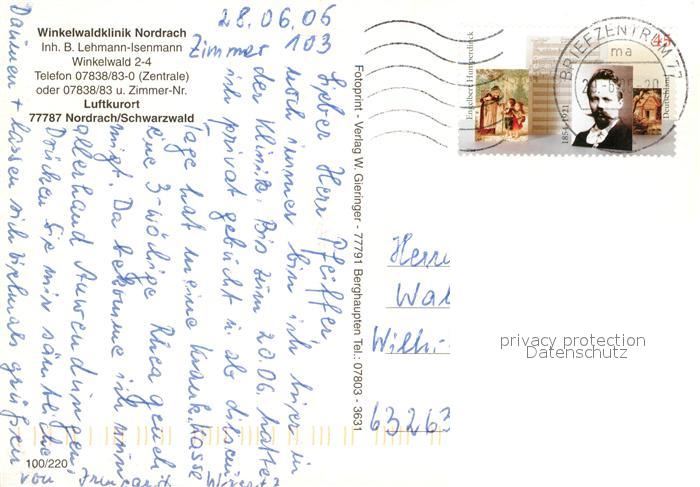 Winkelwaldklinik Nordrach
Inh. B. Lehmann-Isenmann
Winkelwald 2-4
Telefon 07838/83-0 (Zentrale)
oder 07838/83 u. Zimmer-Nr.
Luftkurort
77787 Nordrach/Schwarzwald
28.06.06
Zimmer 103
Lieber Herr Pfeiffer,
noch immer bin ich hier in
der Klinik. Bis zum 20.06. hatte
ich privat gebucht u. ab diesem
Tage hat meine Krank.Kasse
eine 3-wöchige Reha geneh
migt. Da bekomme ich nun
allerhand Anwendungen.
Drücken Sie mir sämtliche
Daumen + lassen sich vielmals grüßen
von
100/220
Fotoprint - Verlag W. Gieringer - 77791 Berghaupten Tel.: 07803 - 3631
Engelbert Humperdinck
1854-1921
45
Deutschland
BRIEFZENTRUM 77
ma
Herrn
Wal
Wilh.-
63263
privacy protection
Datenschutz